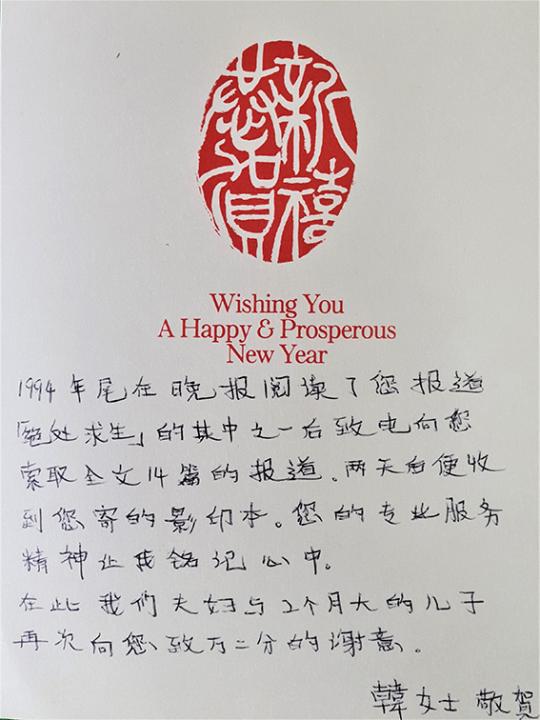 恭賀新禧
Wishing You
A Happy & Prosperous
New Year
1994年尾在晚报阅读了您报道
「绝处求生」的其中之一后致电向您
索取全文14篇的报道。两天后便收
到您寄的影印本。您的专业服务
精神让我铭记心中。
在此我们夫妇与2个月大的儿子
再次向您致万二分的谢意。
韓女士 敬賀